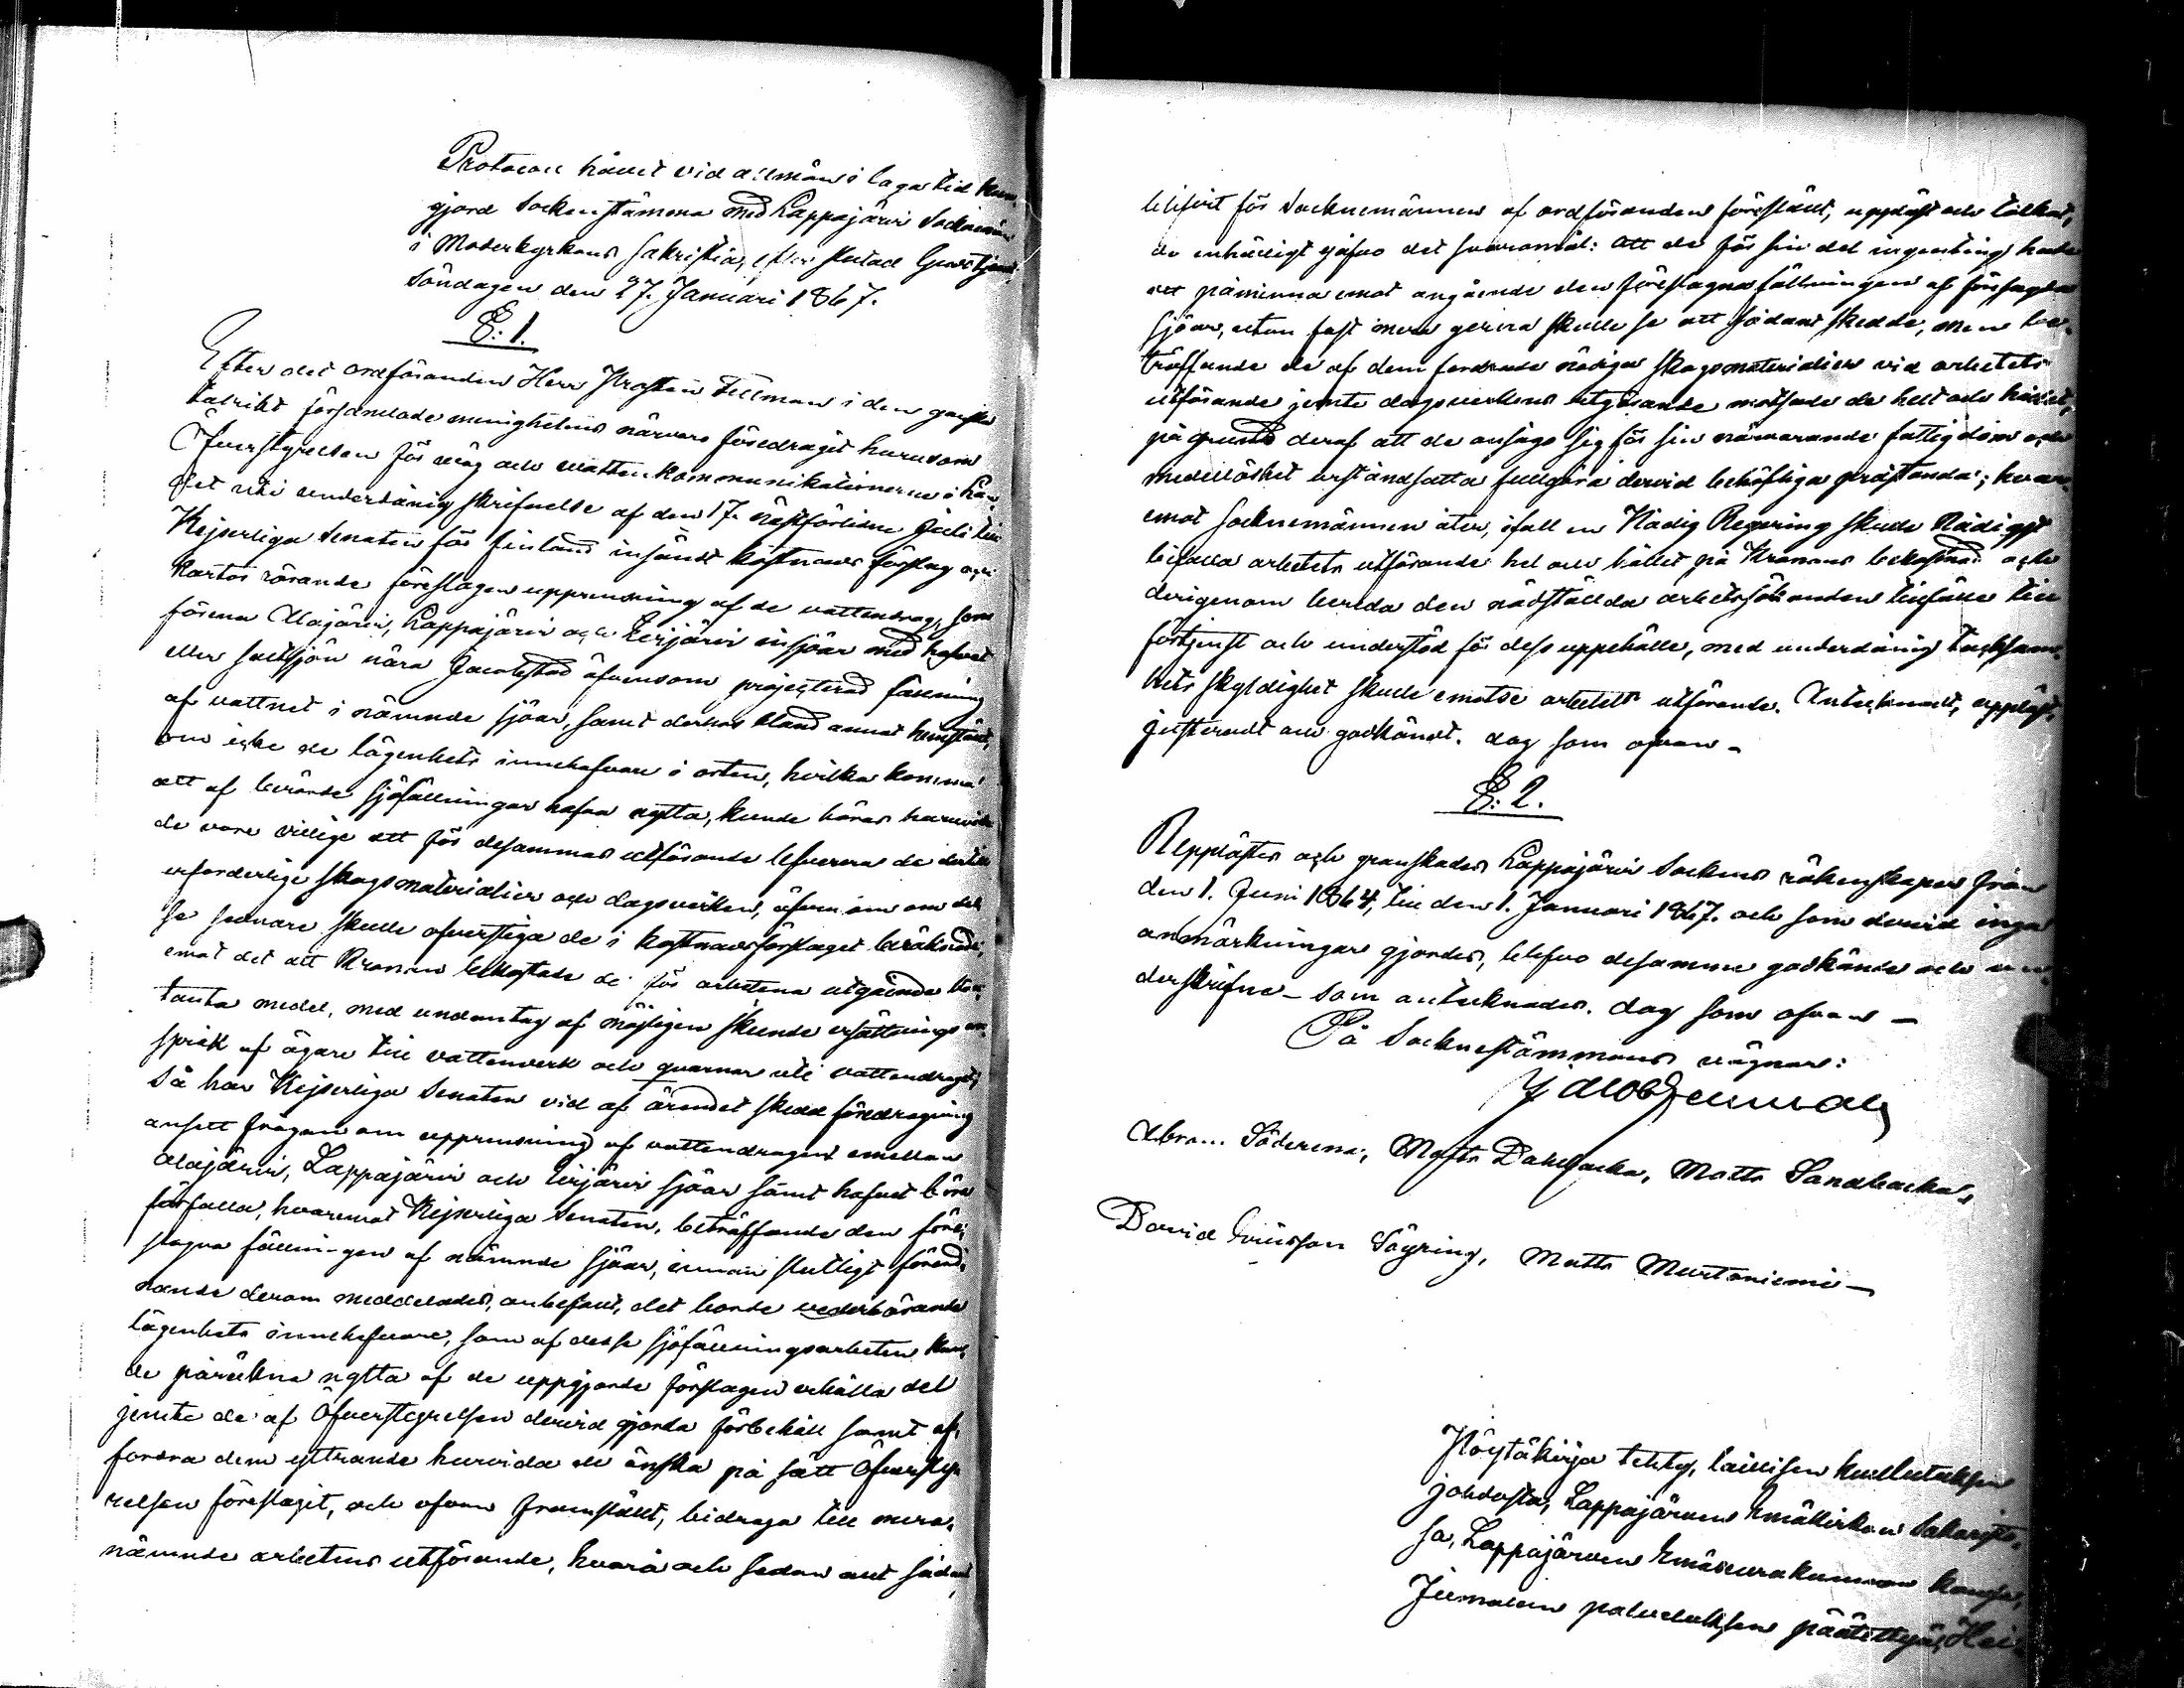 Protocoll hållet vid allmän i laga tid kun,
gjord Sockenstämma med Lappajärvi Socknemän
i Moderkyrkans sakristia, efter slutad Gudstjenst,
Söndagen den 27. Januari 1867.
§: 1.
Efter det ordföranden Herr Prosten Fellman i den ganska
talrikt församlade menighetens närvaro föredragit hurusom
Öfverstyrelsen för väg och vattenkommunikationerne i Lan,
det uti underdånig skrifvelse af den 17. nästförlidne Juli till
Kejserliga Senaten för Finland insändt kostnads förslag och
kartor rörande föreslagen upprensning af de vattendrag, som
förena Alajärvi, Lappajärvi och Evijärvi insjöar med hafvet
eller saltsjön nära Jacobstad äfvensom projecterad fällning
af vattnet i nämnde sjöar, samt derhos bland annat hemställt,
om icke de lägenhets innehafvare i orten, hvilka komma
att af berörde sjöfällningar hafva nytta, kunde höras huruvida
de vore villige att för desammas utförande lefverera de dertill
erforderlige skogsmaterialier och dagsverken, äfven om om des,
se sednare skulle öfverstiga de i kostnadsförslaget beräknade,
emot det att Kronan bekostade de för arbetena utgående kon,
tanta medel, med undantag af möjligen skeende ersättnings an,
språk af ägare till vattenverk och qvarnar uti vattendraget;
Så har Kejserliga Senaten vid af ärendet skedd föredragning
ansett frågan om upprensning af vattendragen emellan
Alajärvi, Lappajärvi och Evijärvi sjöar samt hafvet böra
förfalla, hvaremot Kejserliga Senaten, beträffande den före,
slagna fällningen af nämnde sjöar, innan slutligt förord,
nande derom meddelades, anbefallt, det borde vederbörande
lägenhets innehafvare, som af desse sjöfällningsarbeten kun,
de påräkna nytta af de uppgjorde förslagen erhålla del
jemte de af Öfverstyrelsen dervid gjorda förbehåll samt af,
fordra dem yttrande huruvida de önska på sätt Öfversty,
relsen föreslagit, och ofvan framställt, bidraga till mera,
nämnde arbetens utförande, hvarå och sedan allt sådant
blifvit för Socknemännen af ordföranden föreställt, uppläst och tolkat,
de enhälligt gåfvo det svaromål: att de för sin del ingenting hade
att påminna emot angående den föreslagna fällningen af försagda
sjöar, utan fast mera gerna skulle se att sådant skedde, men be,
träffande de af dem fordrade nödiga skogsmaterialier vid arbetets
utförande jemte dagsverkens utgörande motsade de helt och hållet,
på grund deraf att de ansågo sig för sin närvarande fattigdom och
medellöshet urståndsatta fullgöra dervid behöfliga prestanda; hvar,
emot socknemännen åter, ifall en Nådig Regering skulle Nådigst
bifalla arbetets utförande hel och hållet på Kronans bekostnad och
derigenom bereda den nödställda arbetssökanden tillfälle till
förtjenst och understöd för dess uppehälle, med underdånig tacksam,
hets skyldighet skulle emotse arbetets utförande. Antecknadt, uppläst,
justeradt och godkändt. dag som ofvan –
§: 2.
Upplästes och granskades Lappajärvi Sockens räkenskaper från
den 1. Juni 1864, till den 1. Januari 1867. och som dervid inga
anmärkningar gjordes, blefvo desamma godkända och un,
derskrifne – som antecknades. dag som ofvan –
På Socknestämmans vägnar:
Jacob Fellman
Abra... Söderena, Matts Dahlbacka, Matts Sandbacka,
David Ericsson Söyring, Matts Murtoniemi –
Pöytäkirja tehty, laillisen kuulutuksen
johdosta, Lappajärven Emäkirkon Sakaristo,
sa, Lappajärven Emäseurakunnan kanssa,
Jumalan palveluksen päätettyä, Hel-